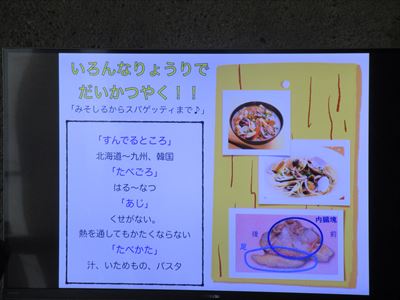 いろんなりょうりで
だいかつやく！！
「みそしるからスパゲッティまで♪」
「すんでるところ」
北海道～九州、韓国
「たべごろ」
はる～なつ
「あじ」
くせがない。
熱を通してもかたくならない
「たべかた」
汁、いためもの、パスタ
内臓塊
後
前
足